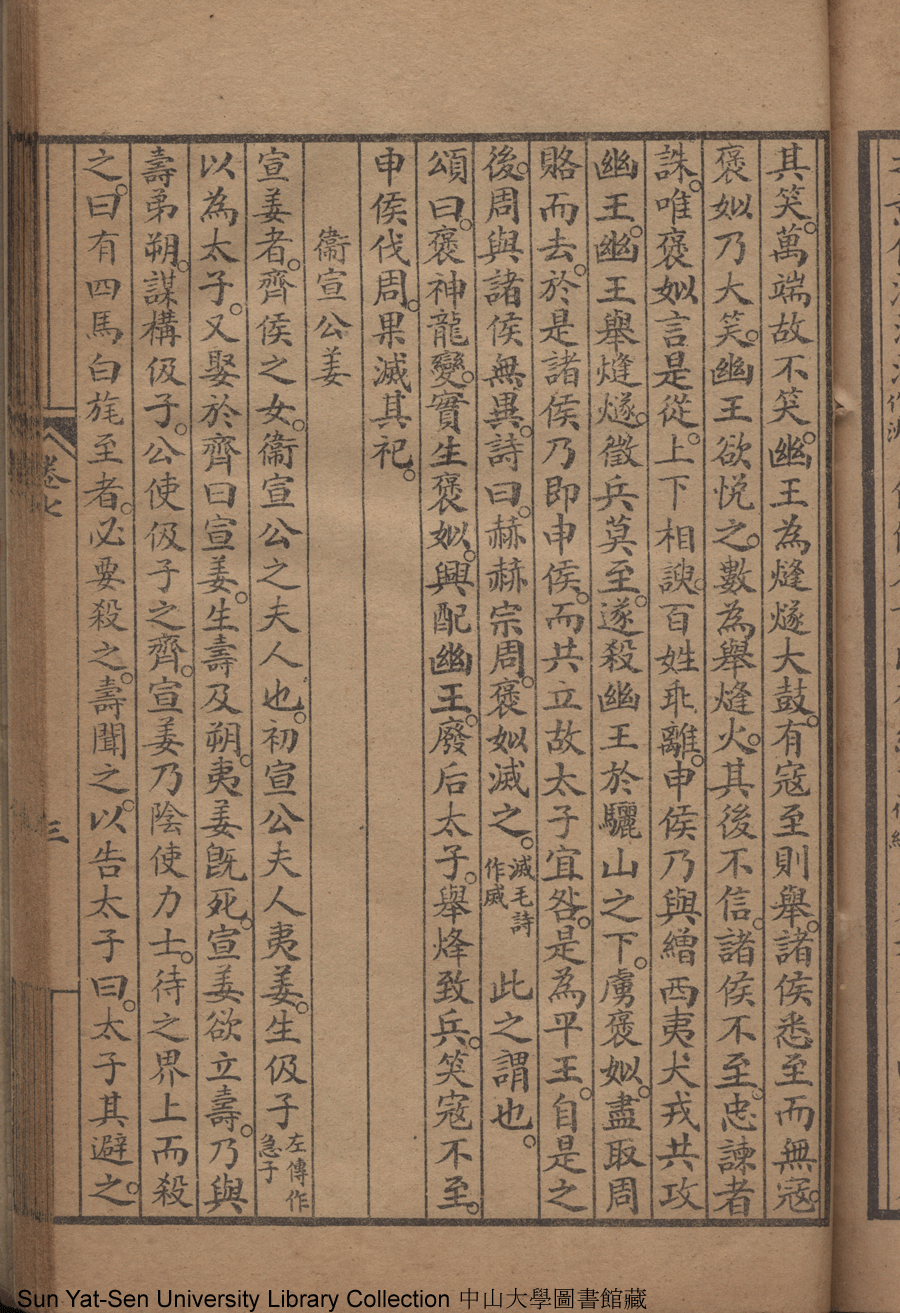 其笑。萬端故不笑。幽王為㷭燧大鼓。有寇至則舉。諸侯悉至而無寇。
褒姒乃大笑。幽王欲悅之。數為舉㷭火。其後不信。諸侯不至。忠諫者
誅。唯褒姒言是從。上下相諛。百姓乖離。申侯乃與繒西夷犬戎共攻
幽王。幽王舉㷭燧。徵兵莫至。遂殺幽王於驪山之下。虜褒姒。盡取周
賂而去。於是諸侯乃即申侯。而共立故太子宜咎。是為平王。自是之
後。周與諸侯無異。詩曰。赫赫宗周。褒姒滅之。滅毛詩作威 此之謂也。
頌曰。褒神龍變。實生褒姒。興配幽王。廢后太子。舉烽致兵。笑寇不至。
申侯伐周。果滅其祀。
衞宣公姜
宣姜者。齊侯之女。衞宣公之夫人也。初宣公夫人夷姜。生伋子左傳作急子
以為太子。又娶於齊曰宣姜。生壽及朔。夷姜既死。宣姜欲立壽。乃與
壽弟朔。謀構伋子。公使伋子之齊。宣姜乃陰使力士。待之界上而殺
之。曰有四馬白旄至者。必要殺之。壽聞之。以告太子曰。太子其避之。
卷七
三
Sun Yat-Sen University Library Collection 中山大學圖書館藏